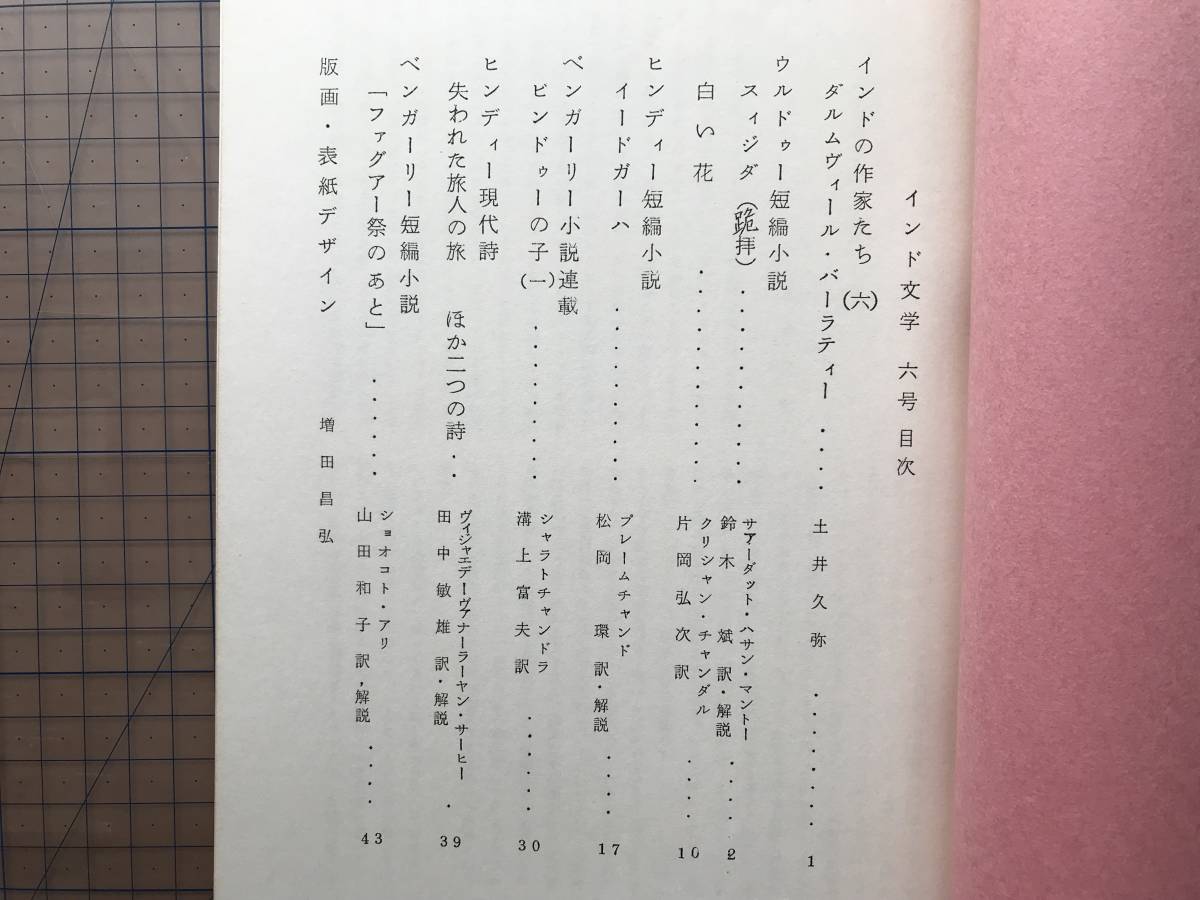 インド文学 六号 目次
インドの作家たち (六)
ダルムヴィール・バーラティー ・・・・ 土井久弥 ・・・・・・・・ 1
ウルドゥー短編小説
スィジダ (跪拝) ・・・・・・・・・・ サアーダット・ハサン・マントー
鈴木 斌 訳・解説 ・・・・ 2
白い花 ・・・・・・・・・・・ クリシャン・チャンダル
片岡弘次 訳 ・・・・ 10
ヒンディー短編小説
イードガーハ ・・・・・・・・・ プレームチャンド
松岡 環 訳・解説 ・・・・ 17
ベンガーリー小説連載
ビンドゥーの子 (一) ・・・・・・・・・ シャラトチャンドラ
溝上富夫 訳 ・・・・・・ 30
ヒンディー現代詩
失われた旅人の旅 ほか二つの詩 ・・ ヴィジャエデーヴァナーラーヤン・サーヒー
田中敏雄 訳・解説 ・ 39
ベンガーリー短編小説
「ファグアー祭のあと」 ・・・・・・ ショオコト・アリ
山田和子 訳,解説 ・・・・ 43
版画・表紙デザイン 増田昌弘